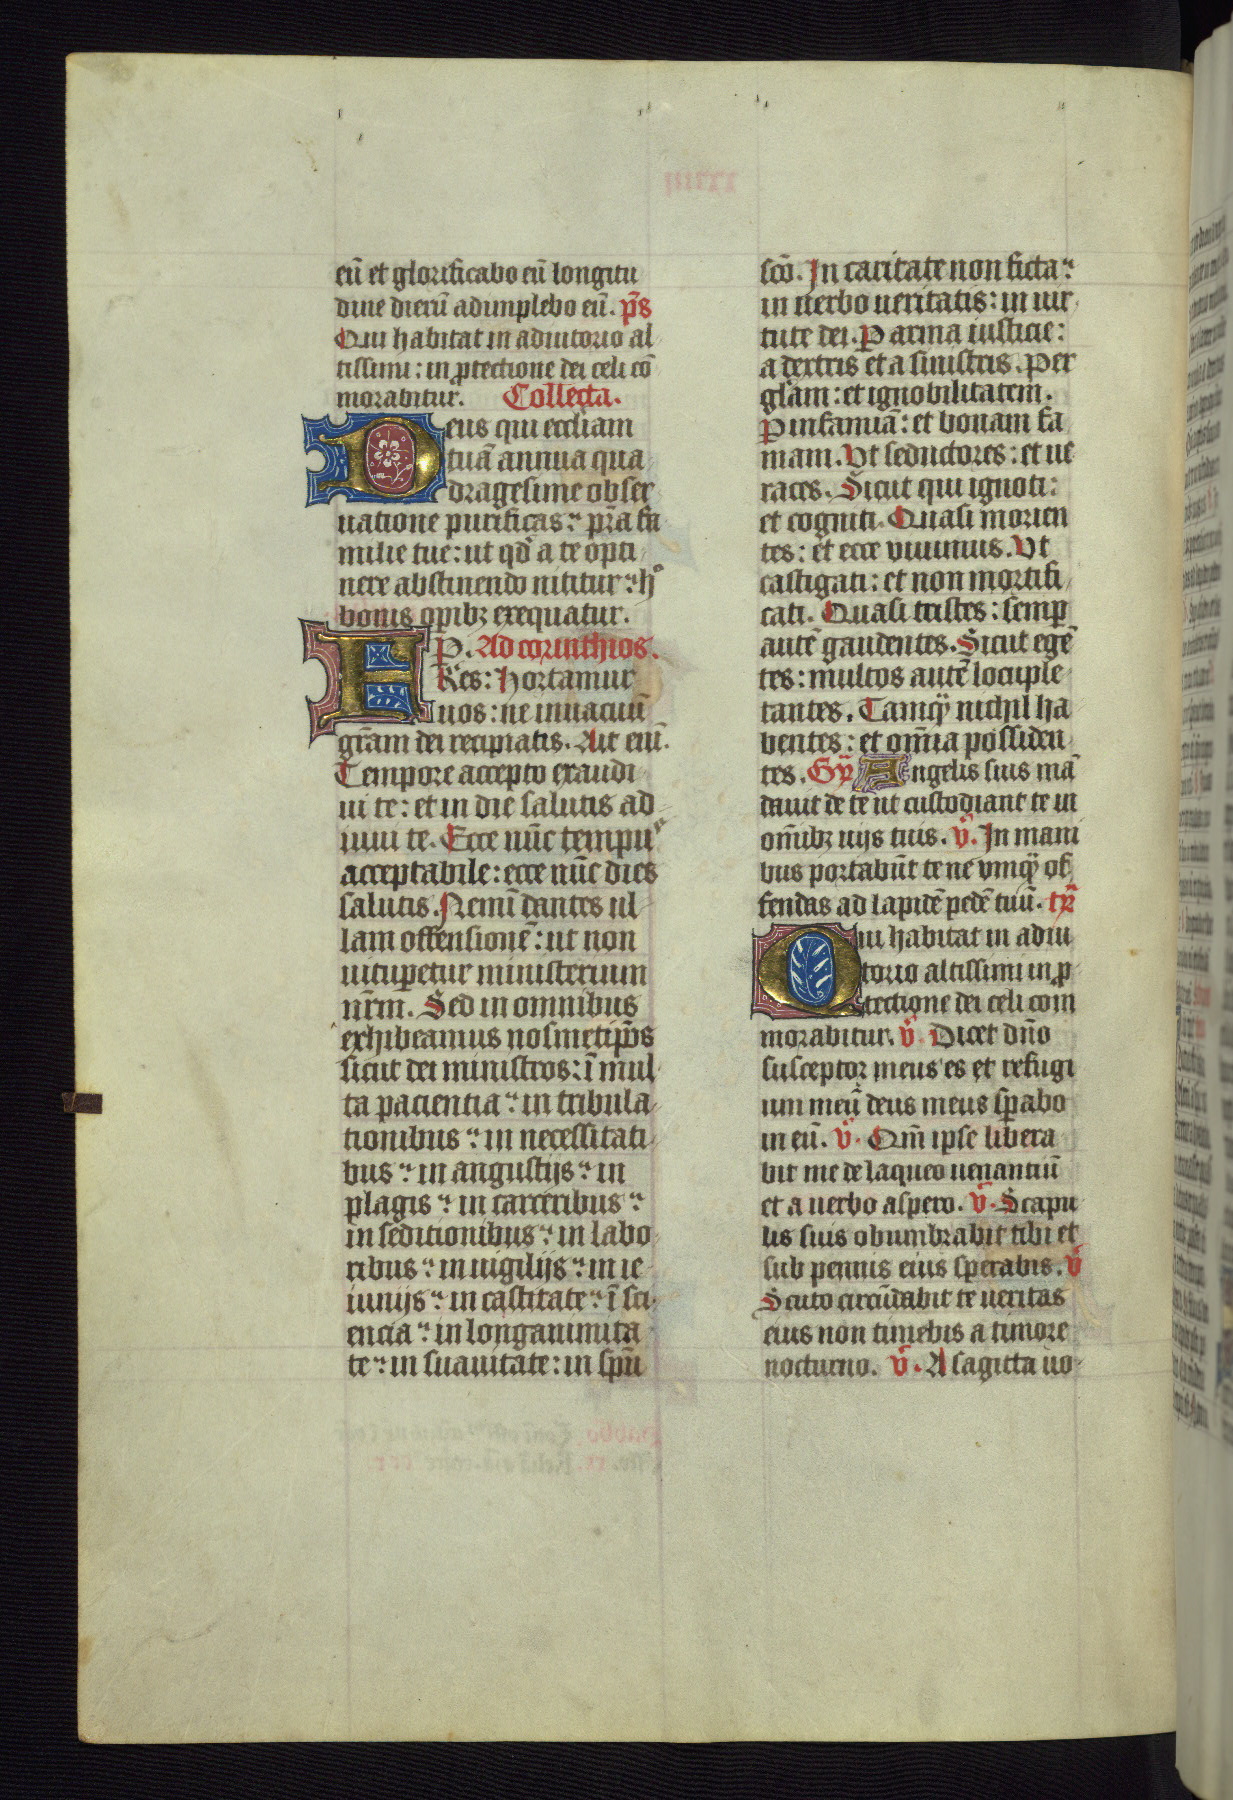 eū et glorificabo eū longitu
dine dierū adimplebo eū. ps̄
Qui habitat in adiutorio al
tissimi: in ꝓtectione dei celi cō
morabitur. Collecta.
Deus qui eccl̄iam
tuā annua qua
dragesime obser
uatione purificas: pr̄a fa
milie tue: ut qd̄ a te opti
nere abstinendo nititur: hͦ
bonis opibꝫ exequatur.
Ep̄. Ad corinthios.
FRēs: Hortamur
uos: ne in uacuū
gr̄am dei recipiatis. Ait eni̅.
Tempore accepto exaudi
ui te: et in die salutis ad
iuui te. Ecce nūc tempus
acceptabile: ecce nūc dies
salutis. Nemini̅ dantes ul
lam offensionē: ut non
uituꝑetur ministerium
nr̄m. Sed in omnibus
exhibeamus nosmetip̄os
sicut dei ministros: ī mul
ta paciencia: in tribula
tionibus: in necessitati
bus: in angustijs: in
plagis: in carceribus:
in seditionibus: in labo
ribus: in uigilijs: in ie
iunijs: in castitate: ī sci
encia: in longanimita
te: in suauitate: in sp̄u
scō. In caritate non ficta:
in uerbo ueritatis: in uir
tute dei. P arma iusticie:
a dextris et a sinistris. Per
gl̄am: et ignobilitatem.
ꝑ infamiā: et bonam fa
mam. Vt seductores: et ue
races. Sicut qui ignoti:
et cogniti. Quasi morien
tes: et ecce viuimus. Vt
castigati: et non mortifi
cati. Quasi tristes: semꝑ
autē gaudentes. Sicut egē
tes: multos autē locuple
tantes. Tamqȝ nichil ha
bentes: et om̄ia possiden
tes. Gr̄ Angelis suis mā
dauit de te ut custodiant te in
om̄ibꝫ uijs tuis. v̄. In mani
bus portabūt te ne vnqȝ of
fendas ad lapidē pedē tuū. tr̄
Qui habitat in adiu
torio altissimi in ꝓ
tectione dei celi com
morabitur. v̄. Dicet dn̄o
susceptor meus es et refugi
um meū deus meus sꝑabo
in eū. v̄. Qm̄ ipse libera
bit me de laqueo uenantiū
et a uerbo aspero. v̄. Scapu
lis suis obumbrabit tibi et
sub pennis eius sperabis. v̄
Scuto circūdabit te ueritas
eius non timebis a timore
nocturno. v̄. A sagitta uo